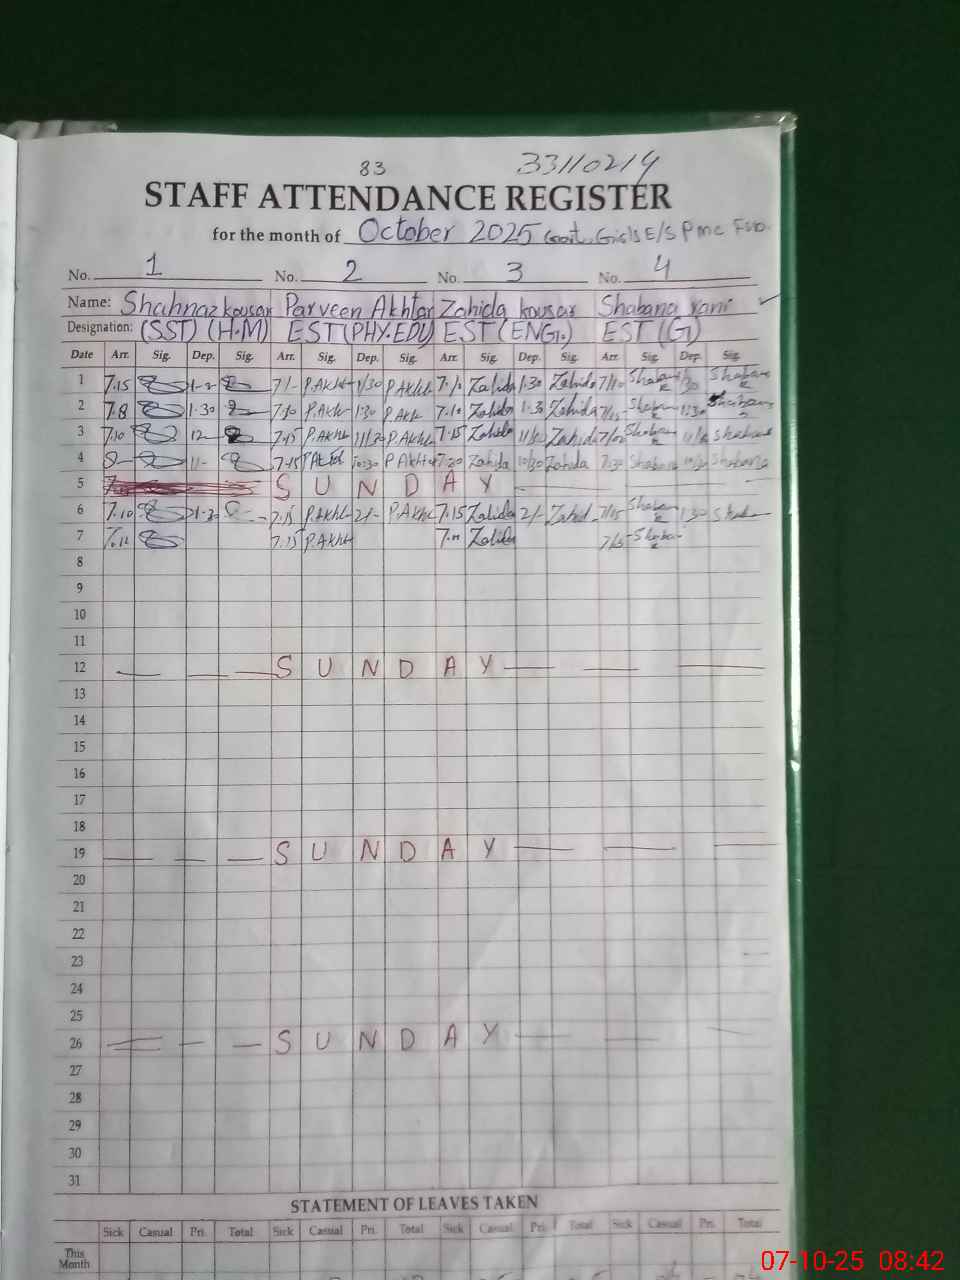 83 33110214
STAFF ATTENDANCE REGISTER
for the month of October 2025 Govt. Girls E/S PMC Fsb.
No. 1 No. 2 No. 3 No. 4
Name: Shahnaz kousar Parveen Akhtar Zahida kousar Shabana rani
Designation: (SST) (H.M) EST (PHY.EDU) EST (ENG.) EST (G)
Date Arr. Sig. Dep. Sig. Arr. Sig. Dep. Sig. Arr. Sig. Dep. Sig. Arr. Sig. Dep. Sig.
1 7.15 7/- P.Akht 1/30 P.Akht 7/10 Zahida 1.30 Zahida 7/10 Shabana 1/30 Shabana
2 7.8 1.30 7/10 P.Akh 1.30 P.Akh 7.10 Zahida 1.30 Zahida 7/15 Shabana 1/30 Shabana
3 7.10 12 7.15 P.Akht 11/20 P.Akht 7.15 Zahida 11/20 Zahida Shabana Shabana
4 8- 11- 7.15 10:30 P Akhtar 7.20 Zahida 10/30 Zahida 7.30 Shabana Shabana
5 S U N D A Y
6 7.10 1.30 7.15 P.Akht 2/- P.Akht 7.15 Zahida 2/- Zahid 7/15 Shabana 1.30 Shaba
7 7.12 7.15 P.Akht Zahida 7/15 Shaba
8
9
10
11
12 S U N D A Y
13
14
15
16
17
18
19 S U N D A Y
20
21
22
23
24
25
26 S U N D A Y
27
28
29
30
31
STATEMENT OF LEAVES TAKEN
Sick Casual Pri. Total Sick Casual Pri. Total Sick Casual Pri. Total Sick Casual Pri. Total
This
Month
07-10-25 08:42